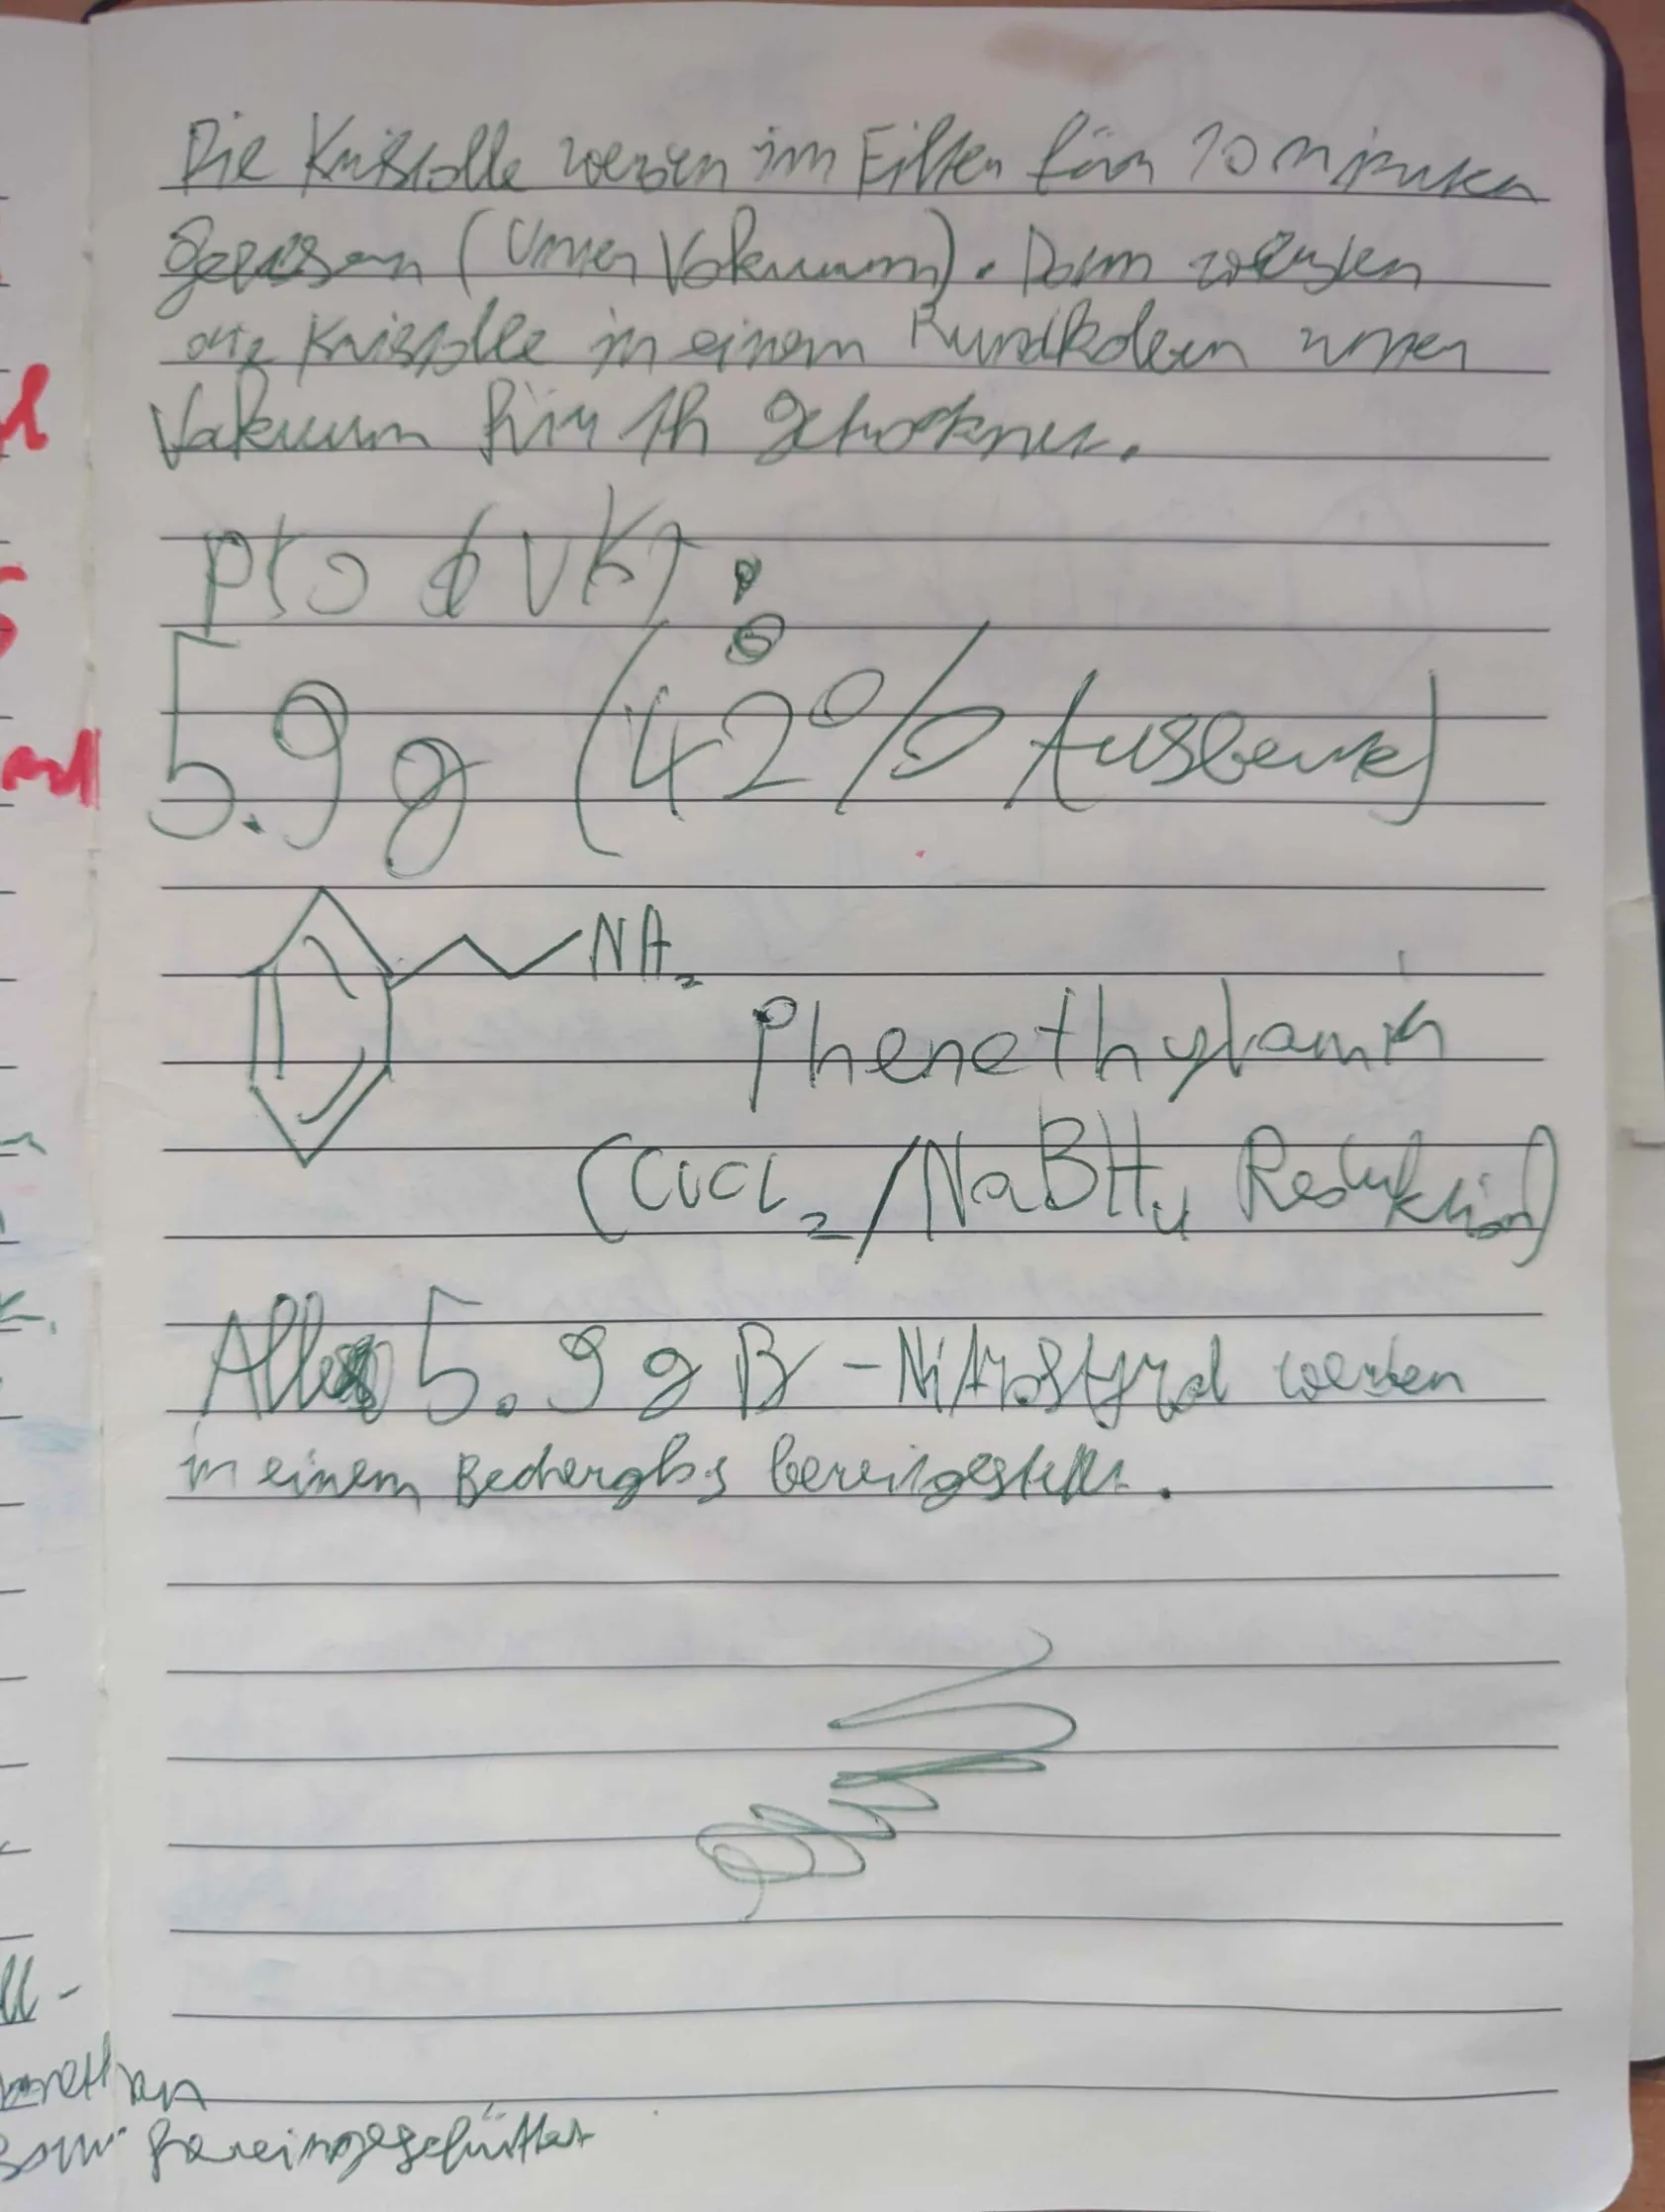 Die Kristalle werden im Filter für 10 minuten
gelassen (Unter Vakuum). Dann wurden
die Kristalle in einem Rundkolben unter
Vakuum für 1h getrocknet.
Produkt:
5.9g (42% Ausbeute)
NH₂
Phenethylamin
(CuCl₂/NaBH₄ Reduktion)
Alle 5.9g B-Nitrostyrol werden
in einem Becherglas bereitgestellt.
ll-
hineingeschüttet